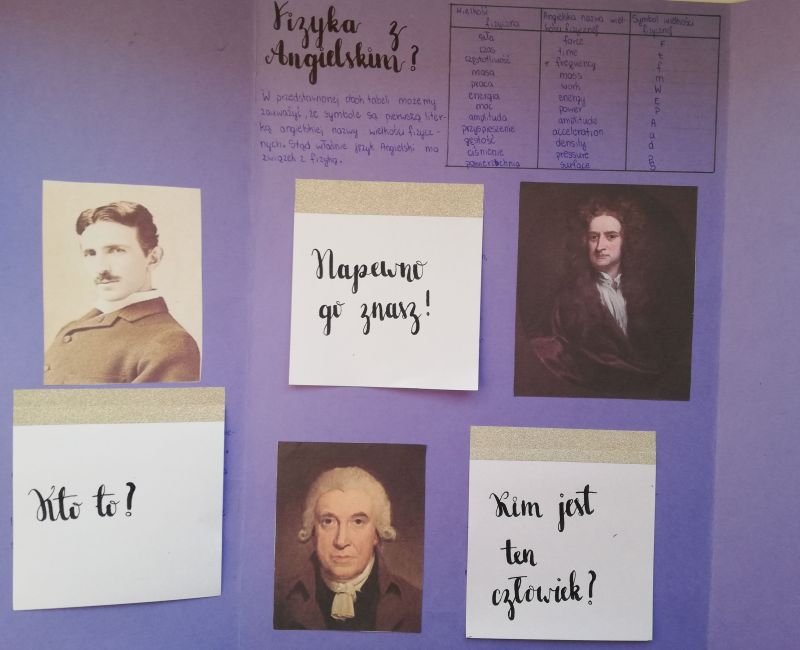 Fizyka z
Angielskim?
W przedstawionej obok tabeli możemy
zauważyć, że symbole są pierwszą liter-
ką angielskiej nazwy wielkości fizycz-
nych. Stąd właśnie język Angielski ma
związek z fizyką.
Wielkość fizyczna Angielska nazwa wiel-kości fizycznej Symbol wielkości fizycznej
siła force F
czas time t
częstotliwość frequency f
masa mass m
praca work W
energia energy E
moc power P
amplituda amplitude A
przyspieszenie acceleration a
gęstość density d
ciśnienie pressure p
powierzchnia surface S
Napewno
go znasz!
Kto to?
Kim jest
ten
człowiek?